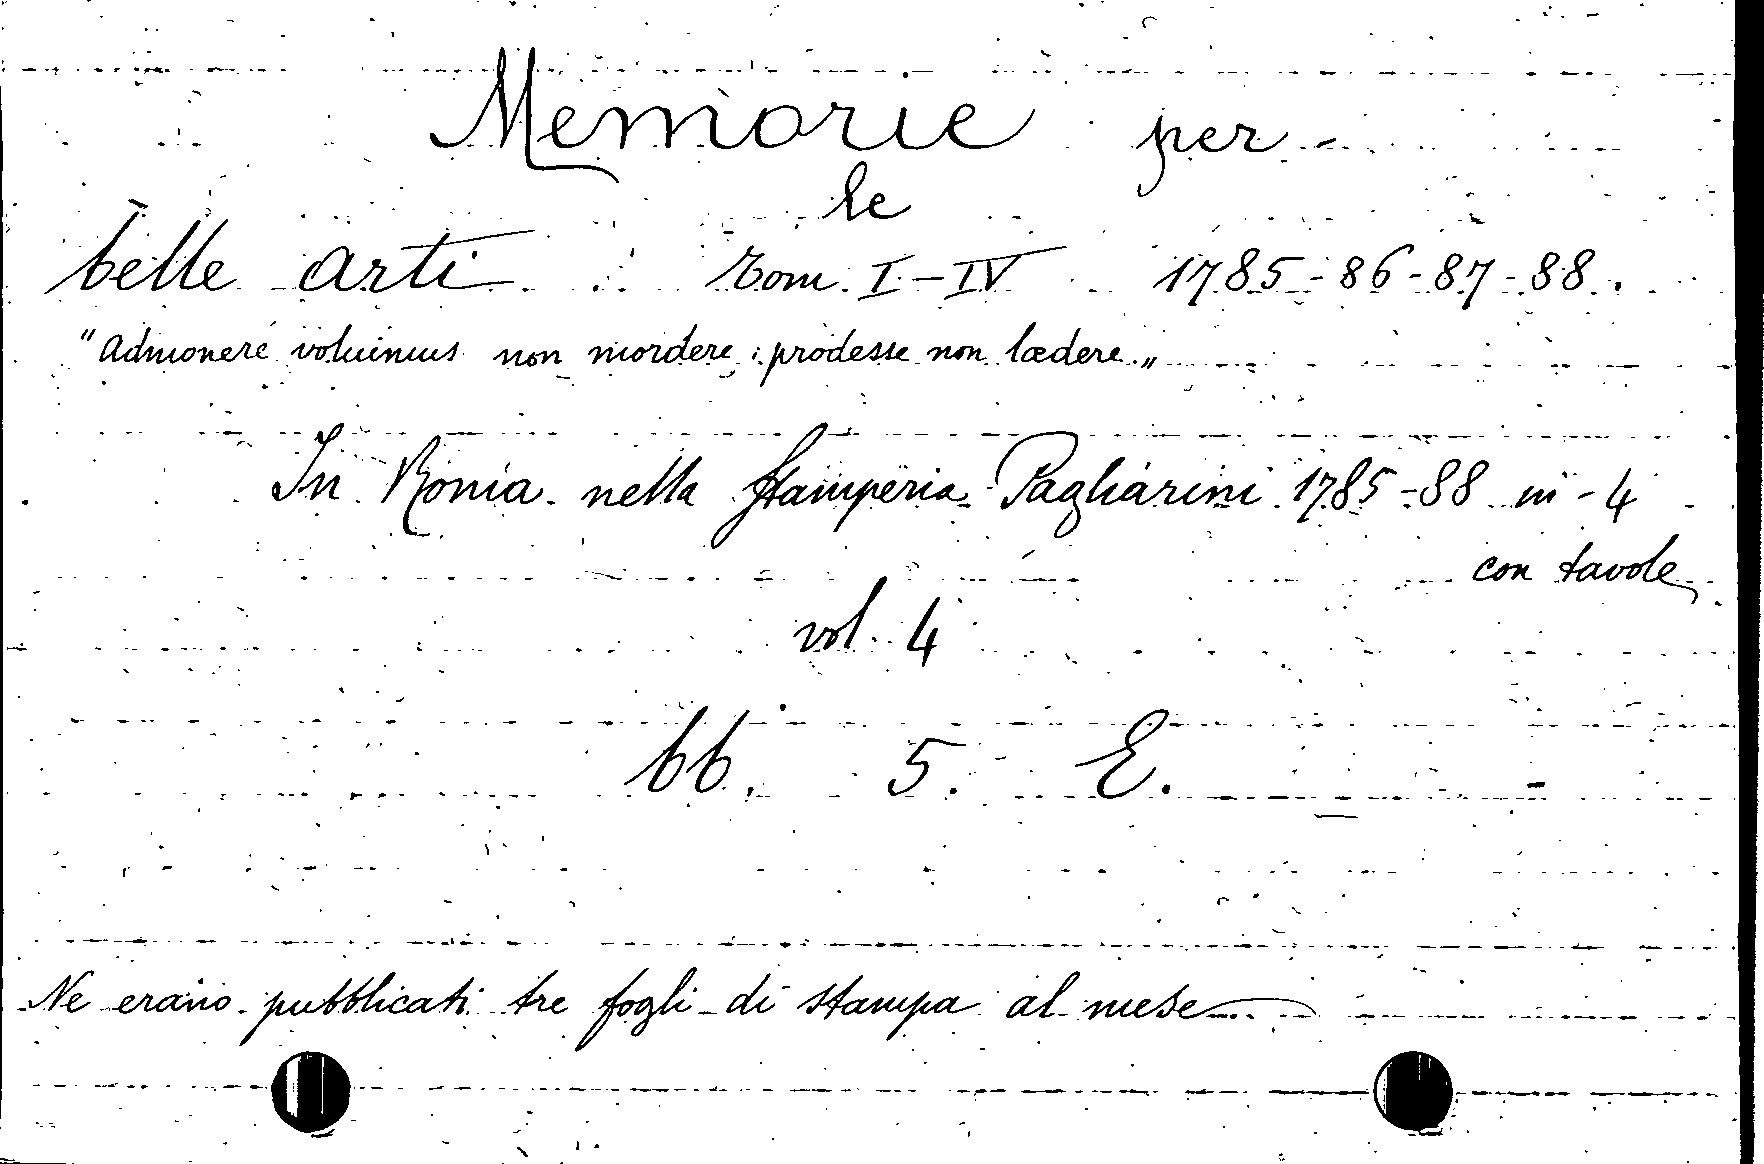 Memorie per
le
belle arti Tom. I-IV 1785-86-87-88.
"Admonere voluimus non mordere; prodesse non lædere."
In Roma nella Stamperia Pagliarini 1785-88 in-4
con tavole
vol. 4
bb. 5. E.
Ne erano pubblicati tre fogli di stampa al mese